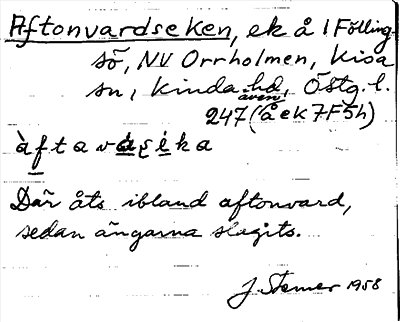 Aftonvardseken, ek å l Fölling-
sö, NV Orrholmen, Kisa
sn, Kinda hd, Östg. l.
även
247 (å ek 7F5h)
àftavaṣéka
Där åts ibland aftonvard,
sedan ängarna slagits.
J. Stemer 1958